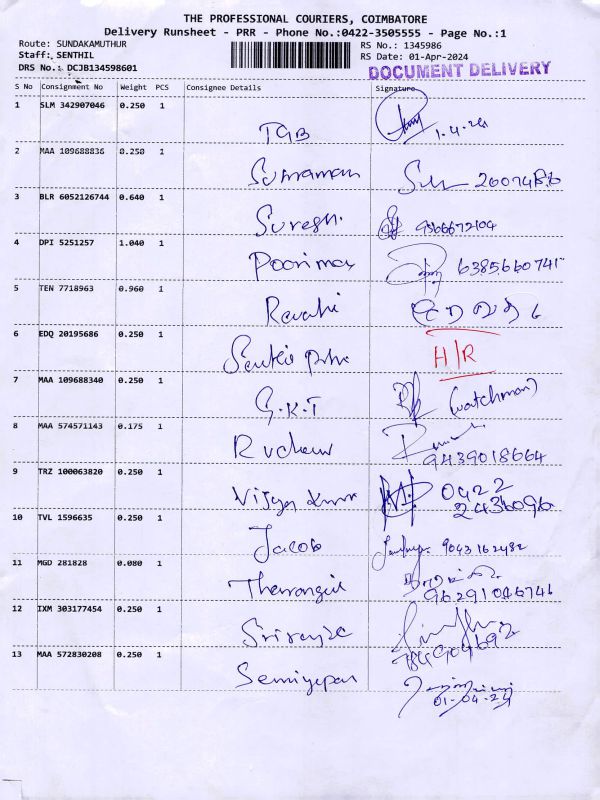 THE PROFESSIONAL COURIERS, COIMBATORE
Delivery Runsheet - PRR - Phone No.:0422-3505555 - Page No.:1
Route: SUNDAKAMUTHUR RS No.: 1345986
Staff: SENTHIL RS Date: 01-Apr-2024
DRS No.: DCJB134598601 DOCUMENT DELIVERY
S No Consignment No Weight PCS Consignee Details Signature
1 SLM 342907046 0.250 1
1.4.24
2 MAA 109688836 0.250 1
3 BLR 6052126744 0.640 1
Suresh. 9566672104
4 DPI 5251257 1.040 1
Poorimax 6385660741
5 TEN 7718963 0.960 1
Revathi
6 EDQ 20195686 0.250 1
H/R
7 MAA 109688340 0.250 1
G.K.T (watchman)
8 MAA 574571143 0.175 1
9439018664
9 TRZ 100063820 0.250 1
Vijay Kumar 0422
2436096
10 TVL 1596635 0.250 1
Jacob 9043162482
11 MGD 281828 0.080 1
96291046746
12 IXM 303177454 0.250 1
13 MAA 572830208 0.250 1
01-04-24